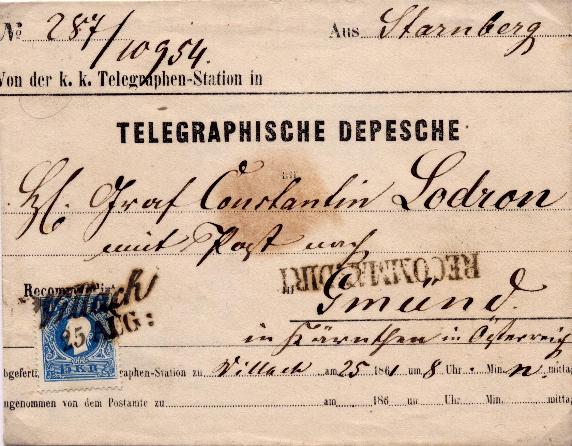 No 287/10954. Aus Starnberg
Von der k. k. Telegraphen-Station in
TELEGRAPHISCHE DEPESCHE
an
H. Graf Constantin Lodron
mit Post nach
RECOMMANDIRT
Gmünd
Villach
25 AUG:
15 KR
in Kärnthen in Österreich
abgeferti, graphen-Station zu Villach am 25 1861 um 8 Uhr Min. n mittag
angenommen von dem Postamte zu am 186 um Uhr Min. mittag